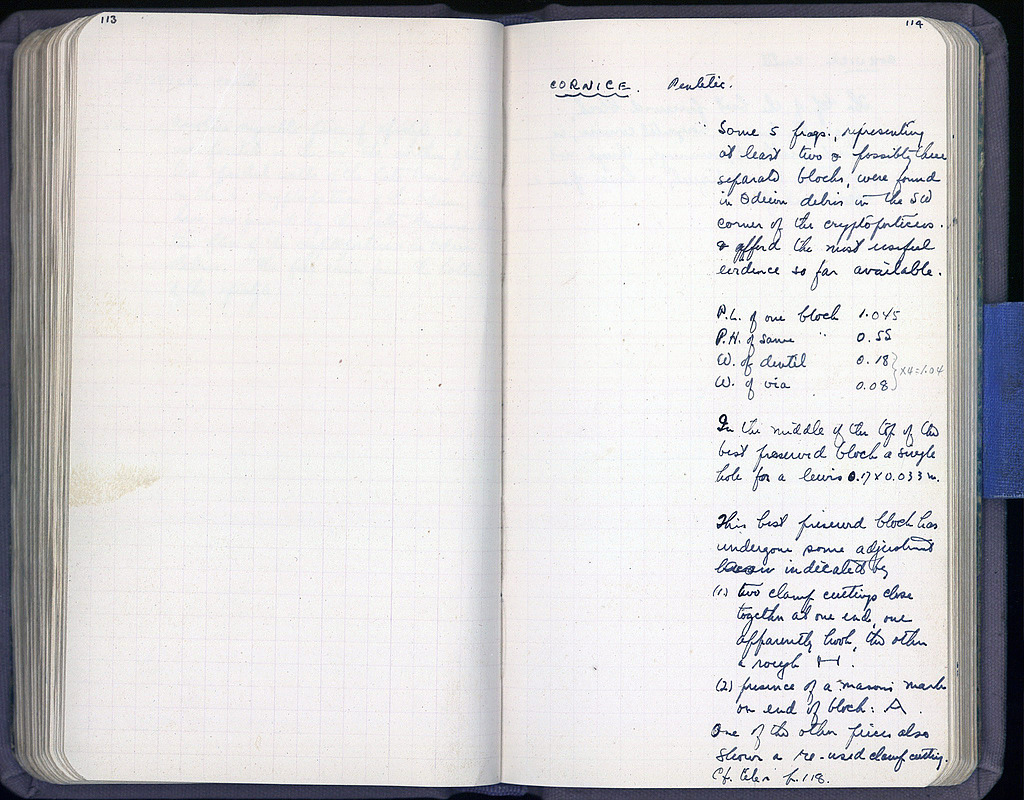 113
114
CORNICE. Pentelic.
Some 5 frags., representing
at least two & possibly three
separate blocks, were found
in Odeion debris in the SW
corner of the cryptoporticus.
& afford the most useful
evidence so far available.
P.L. of one block 1.045
P.H. of same " 0.55
W. of dentil 0.18
W. of via 0.08 } x4=1.04
In the middle of the top of the
best preserved block a single
hole for a lewis 0.17 x 0.033 m.
This best preserved block has
undergone some adjustment
indicated by
(1) two clamp cuttings close
together at one end, one
apparently hook, the other
a rough H.
(2) presence of a mason's mark
on end of block: A.
One of the other pieces also
shows a re-used clamp cutting.
Cf. p. 118.